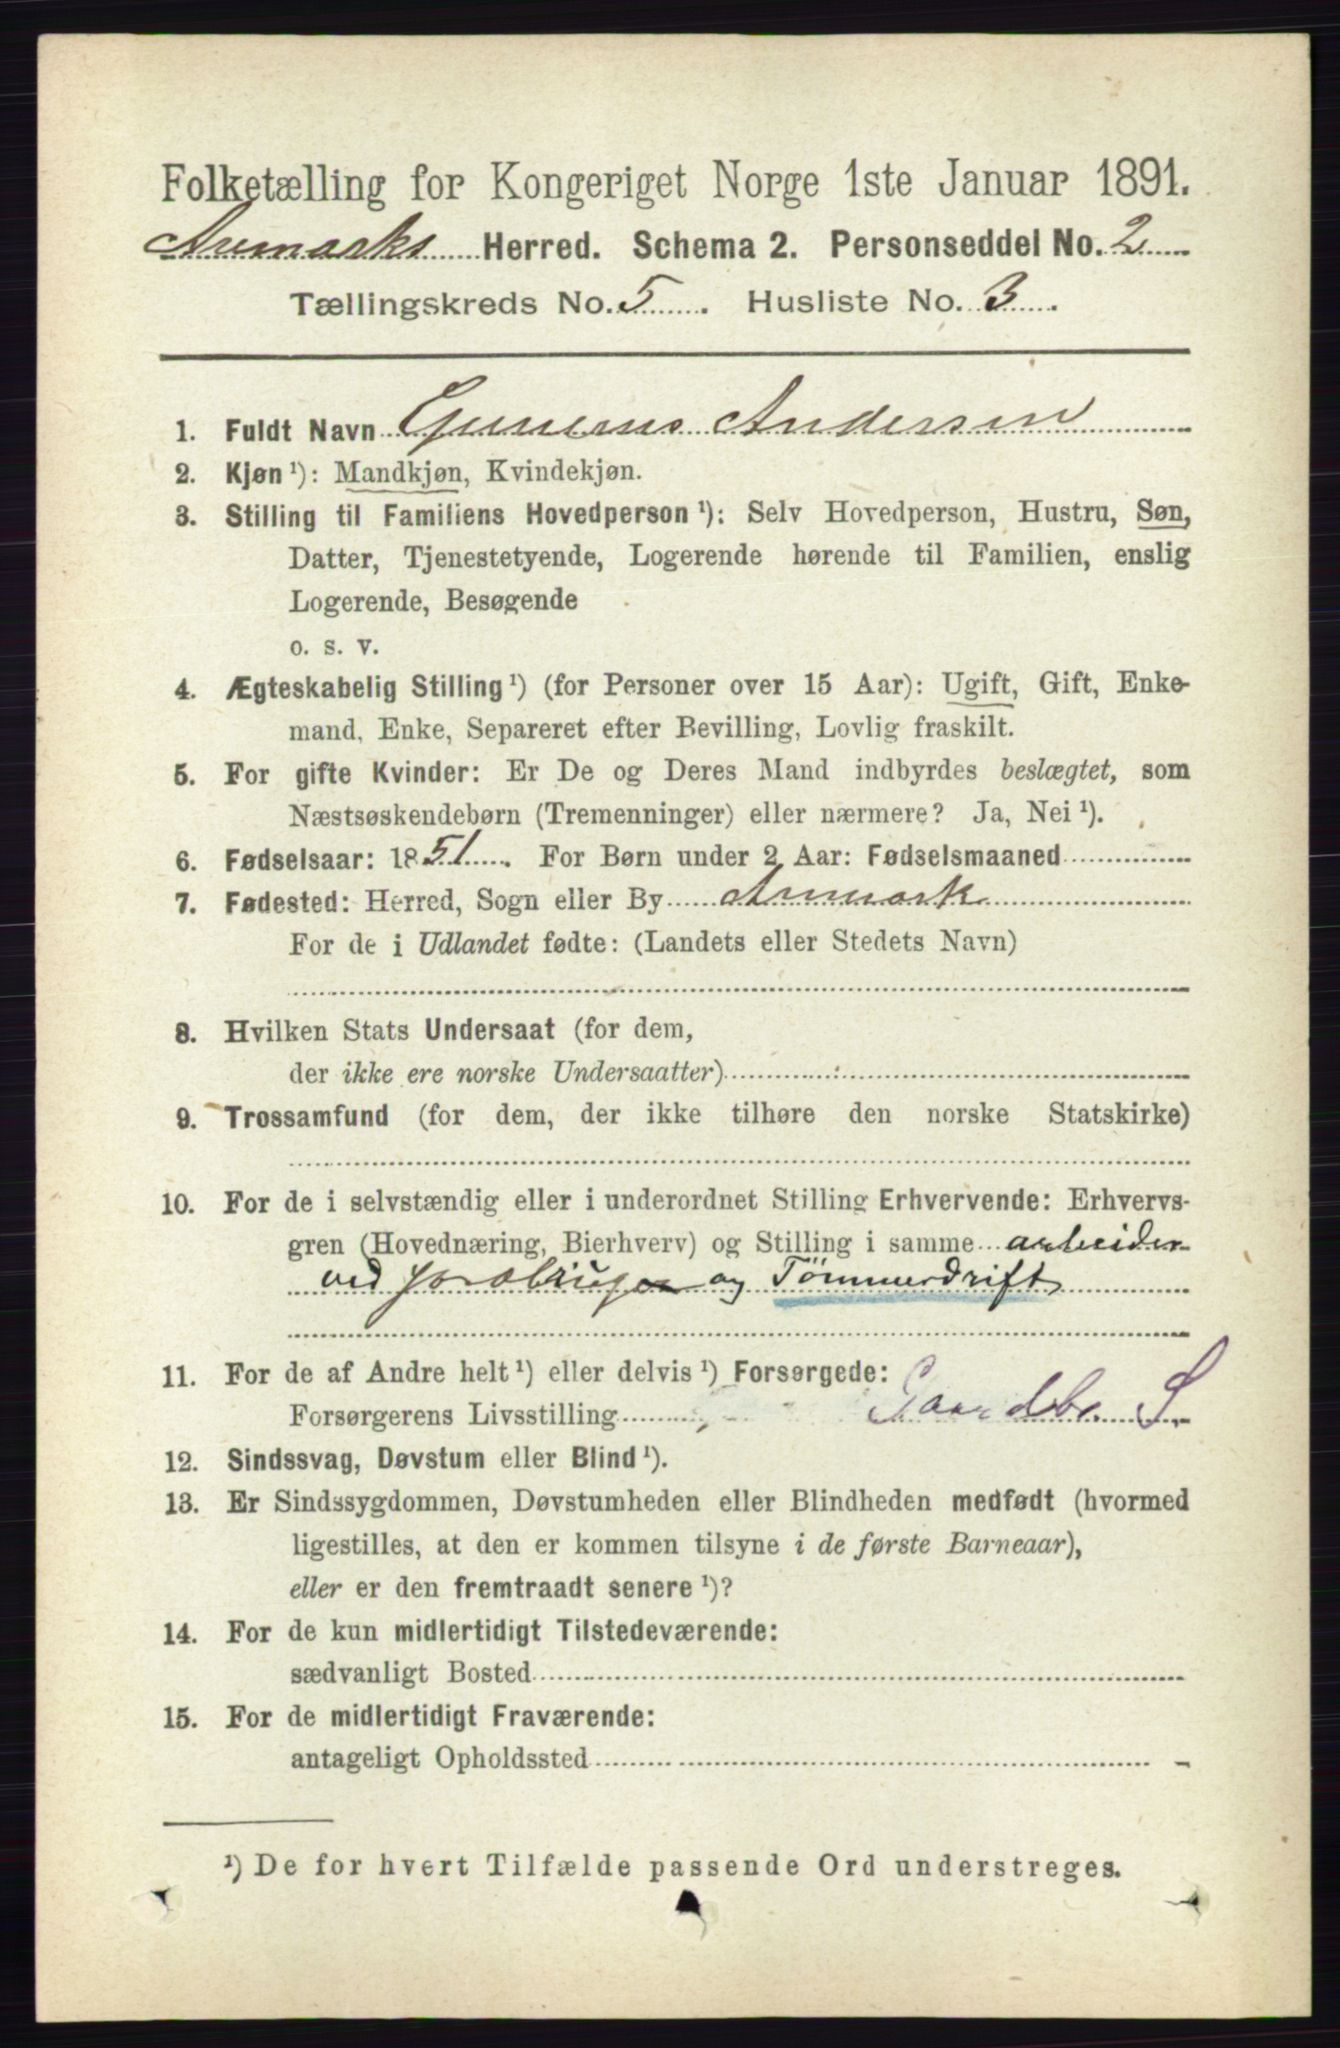 Folketælling for Kongeriget Norge 1ste Januar 1891.
Aremarks Herred. Schema 2. Personseddel No. 2
Tællingskreds No. 5. Husliste No. 3.
1. Fuldt Navn Gunerus Andersen
2. Kjøn ¹): Mandkjøn, Kvindekjøn.
3. Stilling til Familiens Hovedperson ¹): Selv Hovedperson, Hustru, Søn,
Datter, Tjenestetyende, Logerende hørende til Familien, enslig
Logerende, Besøgende
o. s. v.
4. Ægteskabelig Stilling ¹) (for Personer over 15 Aar): Ugift, Gift, Enke-
mand, Enke, Separeret efter Bevilling, Lovlig fraskilt.
5. For gifte Kvinder: Er De og Deres Mand indbyrdes beslægtet, som
Næstsøskendebørn (Tremenninger) eller nærmere? Ja, Nei ¹).
6. Fødselsaar: 1851. For Børn under 2 Aar: Fødselsmaaned
7. Fødested: Herred, Sogn eller By Aremark
For de i Udlandet fødte: (Landets eller Stedets Navn)
8. Hvilken Stats Undersaat (for dem,
der ikke ere norske Undersaatter)
9. Trossamfund (for dem, der ikke tilhøre den norske Statskirke)
10. For de i selvstændig eller i underordnet Stilling Erhvervende: Erhvervs-
gren (Hovednæring, Bierhverv) og Stilling i samme arbeider
ved Jordbruget og Tømmerdrift
11. For de af Andre helt ¹) eller delvis ¹) Forsørgede:
Forsørgerens Livsstilling Gaardbr. S.
12. Sindssvag, Døvstum eller Blind ¹).
13. Er Sindssygdommen, Døvstumheden eller Blindheden medfødt (hvormed
ligestilles, at den er kommen tilsyne i de første Barneaar),
eller er den fremtraadt senere ¹)?
14. For de kun midlertidigt Tilstedeværende:
sædvanligt Bosted
15. For de midlertidigt Fraværende:
antageligt Opholdssted
¹) De for hvert Tilfælde passende Ord understreges.